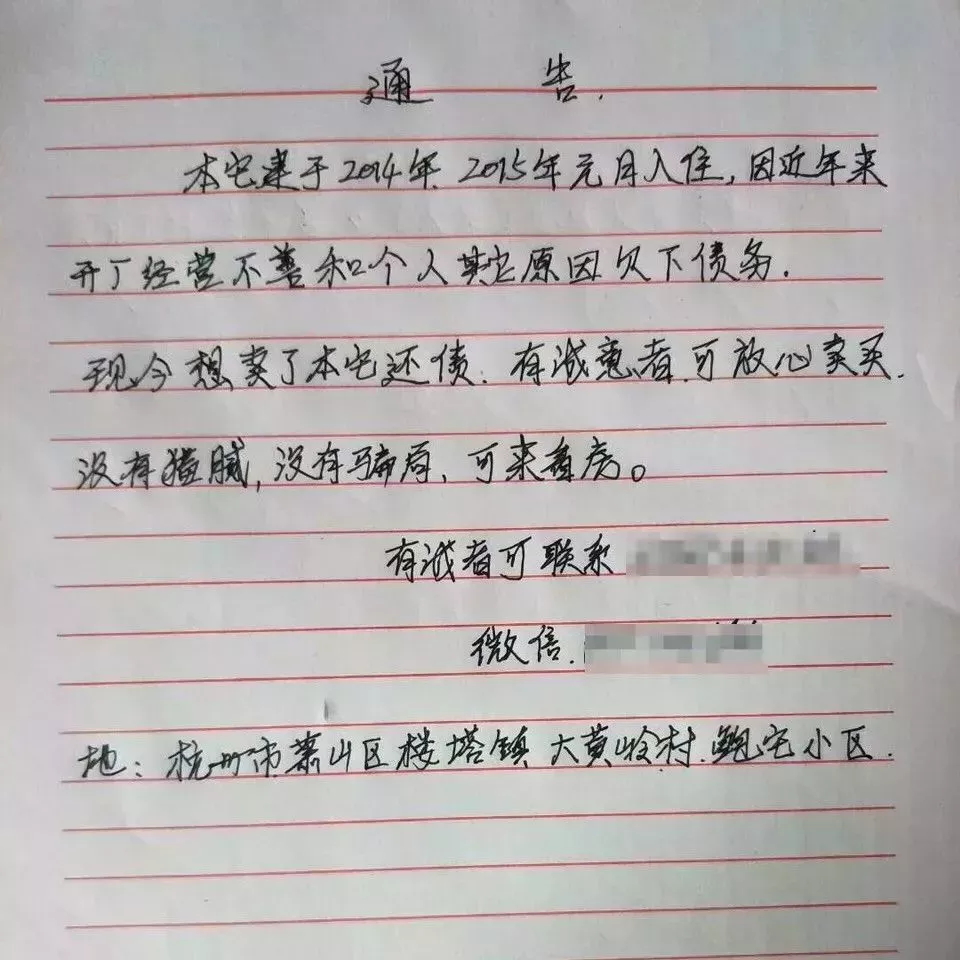 通 告.
本宅建于2014年.2015年元月入住,因近年来
开厂经营不善和个人其它原因欠下债务.
现今想卖了本宅还债.有诚意者.可放心卖买.
没有猫腻,没有骗局,可来看房。
有诚者可联系
微信.
地:杭州市萧山区楼塔镇大黄岭村.鲍宅小区.